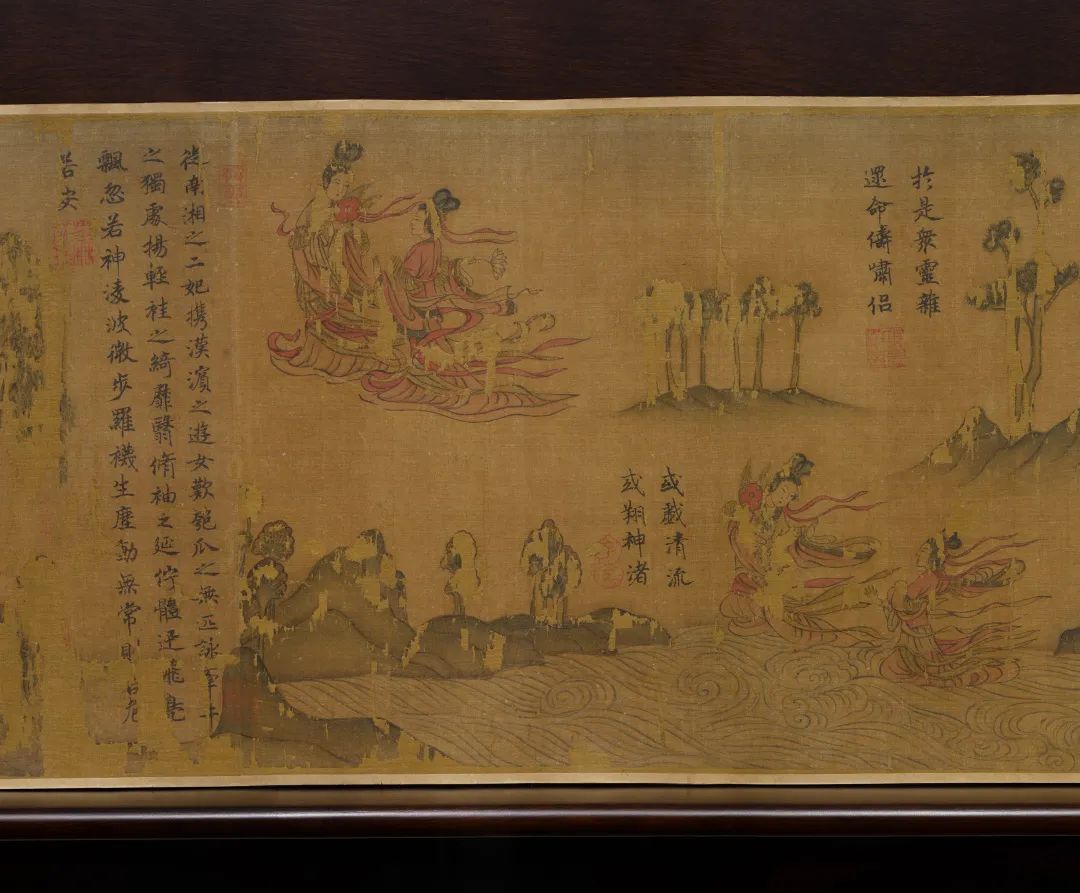 於是衆靈雜
遝命儔嘯侶
或戲清流
或翔神渚
從南湘之二妃携漢濱之遊女歎匏瓜之無匹詠牽牛
之獨處揚輕袿之綺靡翳脩袖之延佇體迅飛鳧
飄忽若神凌波微步羅襪生塵動無常則若危
若安